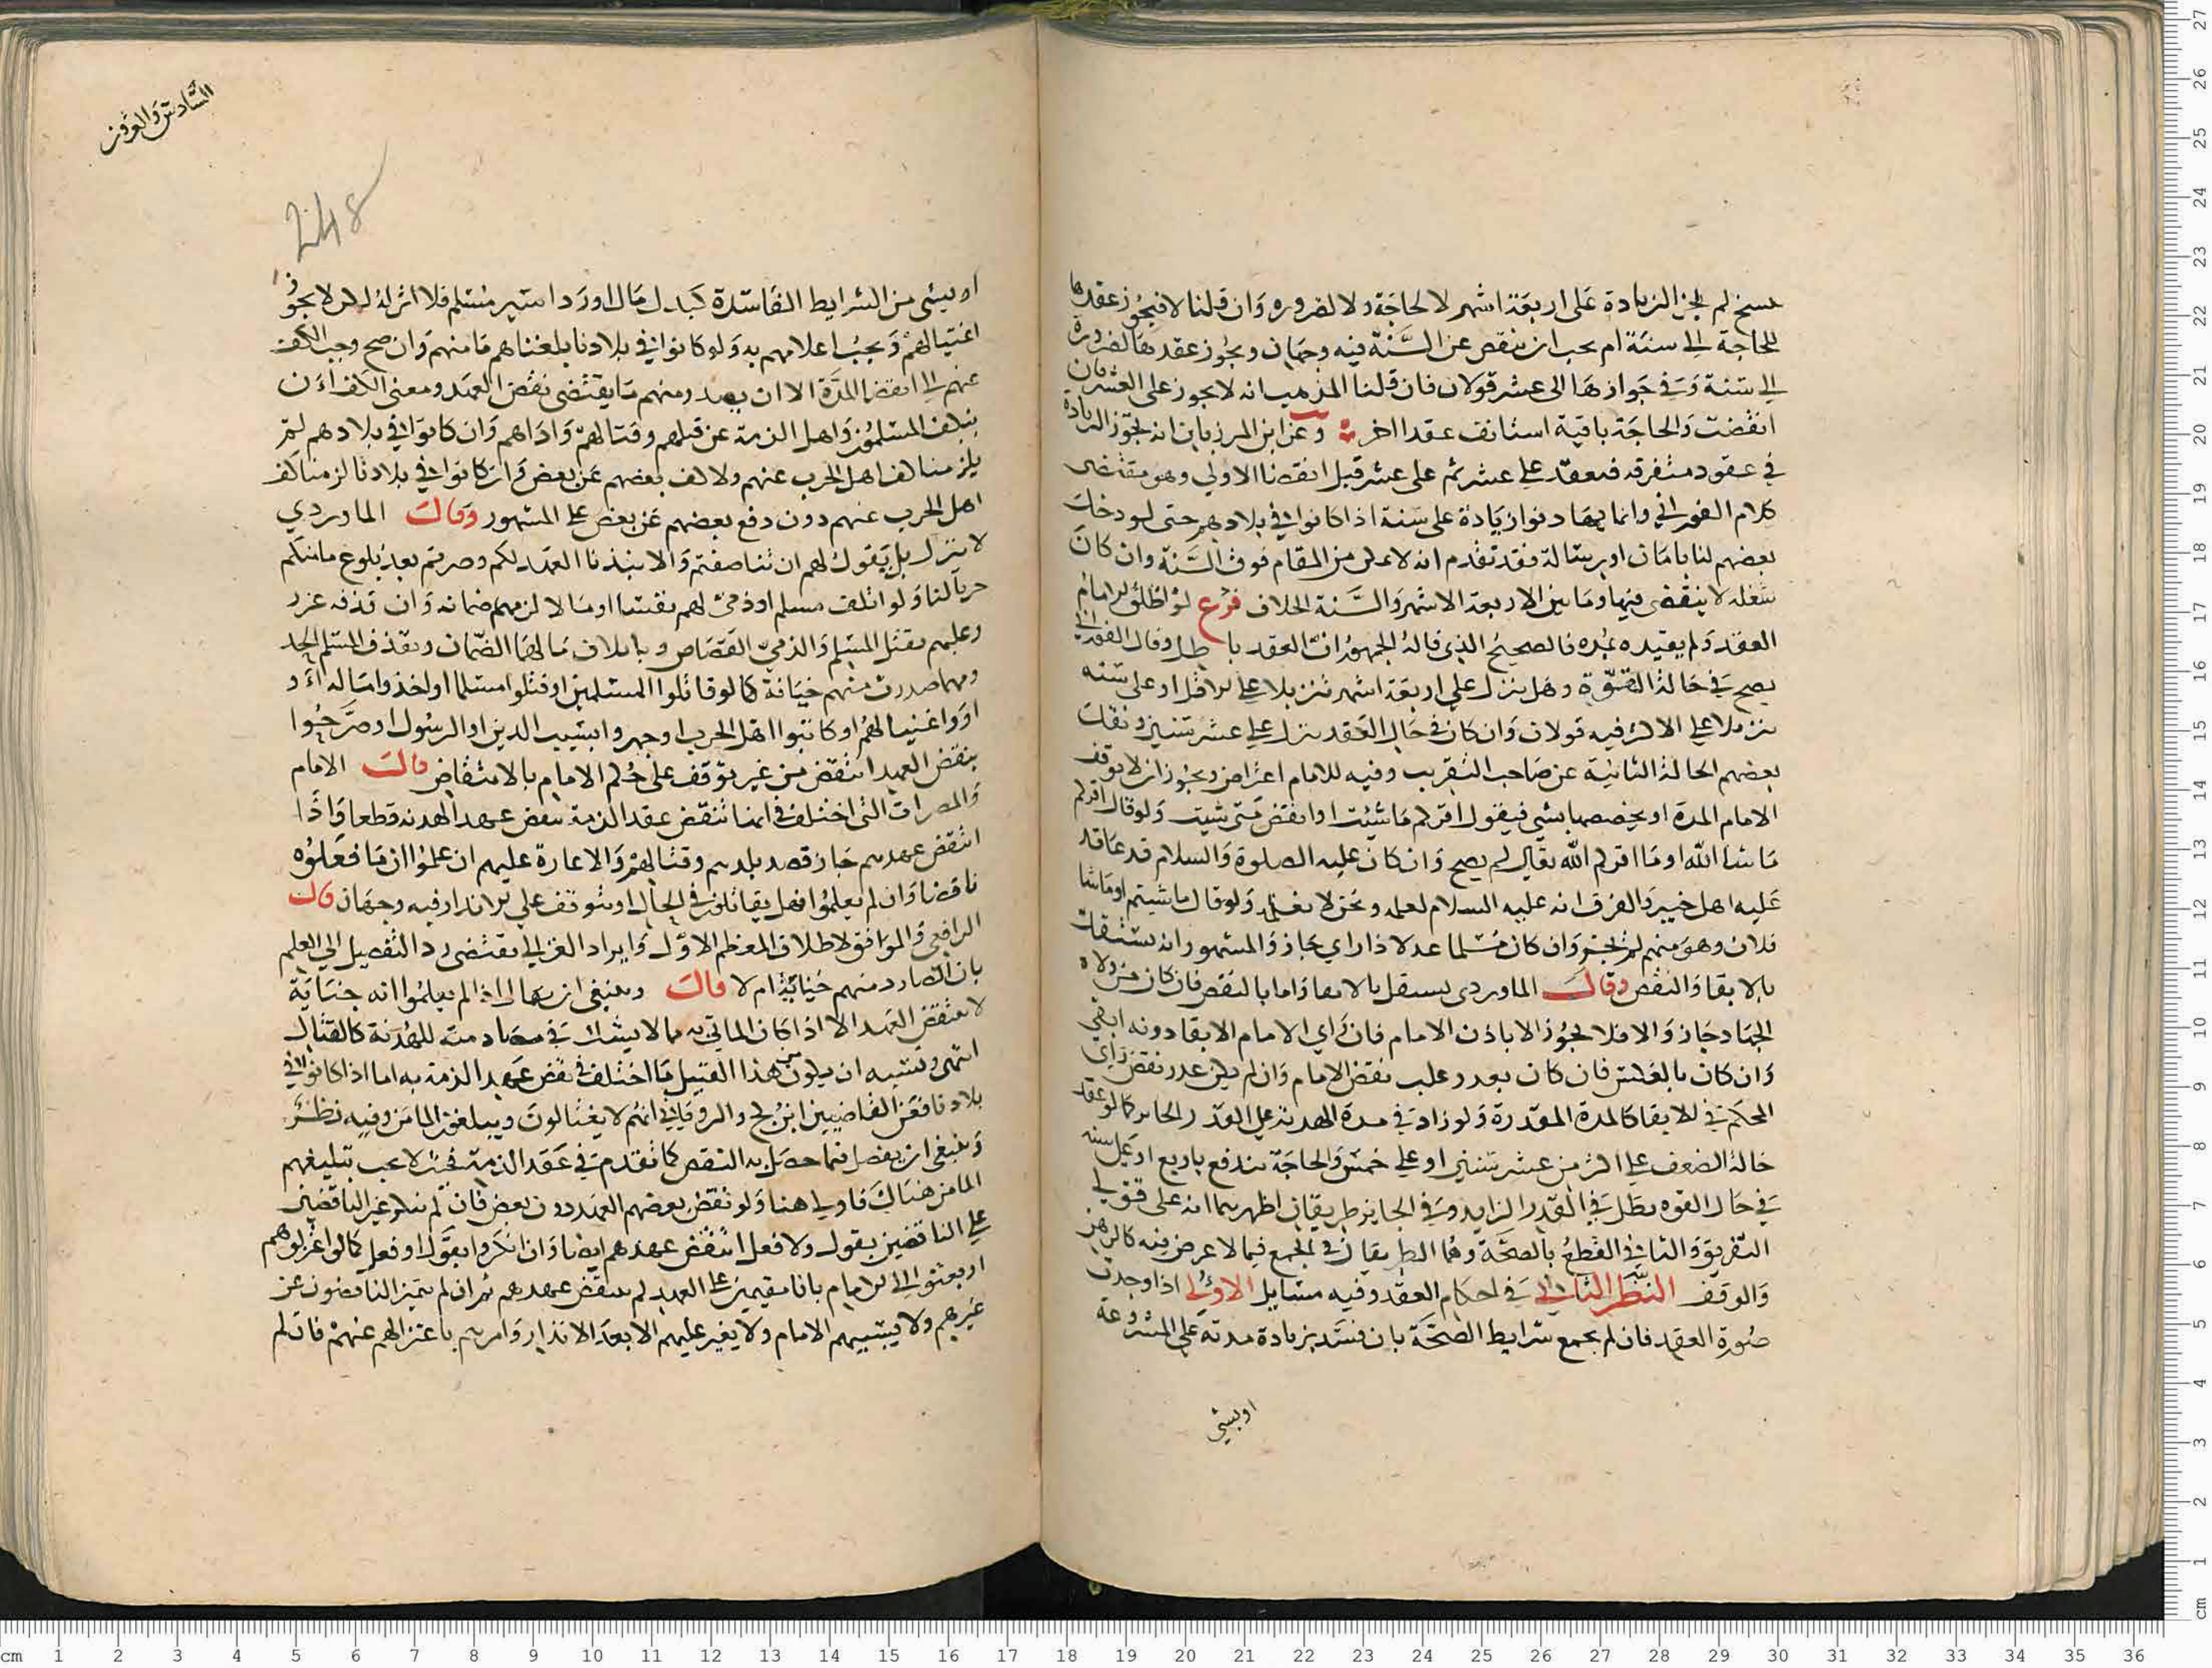 نسخ لم تجز الزيادة على اربعة اشهر لا لحاجة ولا لضروره وان قلنا لا فيجوز عقدها
للحاجة الى سنة ام يجب ان ينقص عن السنة فيه وجهان ويجوز عقدها لضرورة
الى سنة وفي جوازها الى عشر قولان فان قلنا المذهب انه لا يجوز على العشر فان
انقضت والحاجة باقية استانف عقدا اخر وعن ابن المرزبان انه تجوز الزيادة
في عقود متفرقة فيعقد على عشر ثم على عشر قبل انقضا الاولى وهو مقتضى
كلام الفوراني وانما يهادنوا زيادة على سنة اذا كانوا في بلادهم حتى لو دخل
بعضهم لنا بامان او برسالة فقد تقدم انه لا يمكن من المقام فوق السنة وان كان
شغله لا ينقضي فيها وما بين الاربعة الاشهر والسنة الخلاف فرع لو اطلق الامام
العقد ولم يقيده بمده فالصحيح الذي قاله الجمهور ان العقد باطل وقال الفوراني
يصح في حالة القوة وهل ينزل على اربعة اشهر تنزيلا على الاقل او على سنه
تنزيلا على الاكثر فيه قولان وان كان في حال العقد ينزل على عشر سنين ونقل
بعضهم الحالة الثانية عن صاحب التقريب وفيه للامام اعتراض ويجوز ان لا يوقف
الامام المدة او يخصصها بشي فيقول اقركم ما شيت او انقض متى شيت ولو قال اقركم
ما شا الله او ما اقركم الله تعالى لم يصح وان كان عليه الصلوة والسلام قد عاقد
عليه اهل خيبر والفرق انه عليه السلام لعلمه ونحن لا نعلمه ولو قال ما شيتم او ما شا
فلان وهو منهم لم يجز وان كان مسلما عدلا ذا راي جاز والمشهور انه يستقل
بالابقا والنقض وقال الماوردي يستقل بالابقا واما بالنقض فان كان من ولاة
الجهاد جاز والا فلا يجوز الا باذن الامام فان راى الامام الابقا دونه ابقي
وان كان بالعكس فان كان بعذر وعلب نقض الامام وان لم يكن عذر نقض راي
المحكم في الابقا كالمدة المقدرة ولو زاد في مدة الهدنة على القدر الجايز كما لو عقد
حالة الضعف على اكثر من عشر سنين او على خمس والحاجة تندفع باربع او على سنه
في حال القوه بطل في القدر الزايد وفي الجايز طريقان اظهرهما انه على قولي
التفريق والثاني القطع بالصحة وهما الطريقان في الجمع فيما لا عوض فيه كالرهن
والوقف النظر الثاني في احكام العقد وفيه مسايل الاولى اذا وجدت
صورة العقد فان لم يجمع شرايط الصحة بان فسد بزيادة مدته على المشروعة
او بشي
السادس والعشرون
248
او بشي من الشرايط الفاسدة كبذل مال او رد اسير مسلم فلا اثر له لكن لا يجوز
اغتيالهم ويجب اعلامهم به ولو كانوا في بلادنا بلغناهم مامنهم وان صح وجب الكف
عنهم الى انقضا المدة الا ان يصدر منهم ما يقتضي نقض العهد ومعنى الكف ان
يكف المسلمون واهل الذمة عن قتلهم وقتالهم واذاهم وان كانوا في بلادهم لم
يلزمنا كف اهل الحرب عنهم ولا كف بعضهم عن بعض وان كانوا في بلادنا لزمنا كف
اهل الحرب عنهم دون دفع بعضهم عن بعض على المشهور وقال الماوردي
لا نترك بل نقول لهم ان تناصفتم والا نبذنا العهد لكم وصرتم بعد بلوغ مامنكم
حربا لنا ولو اتلف مسلم او ذمي لهم نفسا او مالا لزمهم ضمانه وان قذفه عزر
وعليهم بقتل المسلم والذمي القصاص وباتلاف مالهما الضمان وبقذف المسلم الحد
ومهما صدرت منهم خيانة كما لو قاتلوا المسلمين او قتلوا مسلما او اخذوا ماله او
اووا عينا لهم او كاتبوا اهل الحرب او جهروا بسب الدين او الرسول او صرحوا
بنقض العهد انتقض من غير توقف على حكم الامام بالانتقاض قال الامام
والمضرات التي اختلف في انها تنقض عقد الذمة تنقض عهد الهدنه قطعا واذا
انتقض عهدهم جاز قصد بلدهم وقتالهم والاغارة عليهم ان علموا ان ما فعلوه
ناقضا وان لم يعلموا فهل يقاتلون في الحال او يتوقف على الانذار فيه وجهان قال
الرافعي والموافق لاطلاق المعظم الاول وايراد الغزالي يقتضي رد التفصيل الى العلم
بان الصادر منهم خيانة ام لا قال وينبغي ان يقال اذا لم يعلموا انه جناية
لا ينتقض العهد الا اذا كان الماتي به مما لا يشك في مضادمته للهدنة كالقتال
انتهى ويشبه ان يكون من هذا القبيل ما اختلف في نقض عهد الذمة به اما اذا كانوا في
بلادنا فعن القاضيين ابن كج والروياني انهم لا يغتالون ويبلغون المامن وفيه نظر
وينبغي ان يفصل فيما حصل به النقض كما تقدم في عقد الذمة فحيث لا يجب تبليغهم
المامن هناك فاولى هنا ولو نقض بعضهم العهد دون بعض فان لم ينكر غير الناقضين
على الناقضين بقول ولا فعل انتقض عهدهم ايضا وان انكروا بقول او فعل كما لو اعتزلوهم
او بعثوا الى الامام بانا مقيمين على العهد لم ينتقض عهدهم ثم ان لم يتميز الناقضون عن
غيرهم ولا يبيتهم الامام ولا يغير عليهم الا بعد الانذار وامرهم باعتزالهم عنهم فان لم